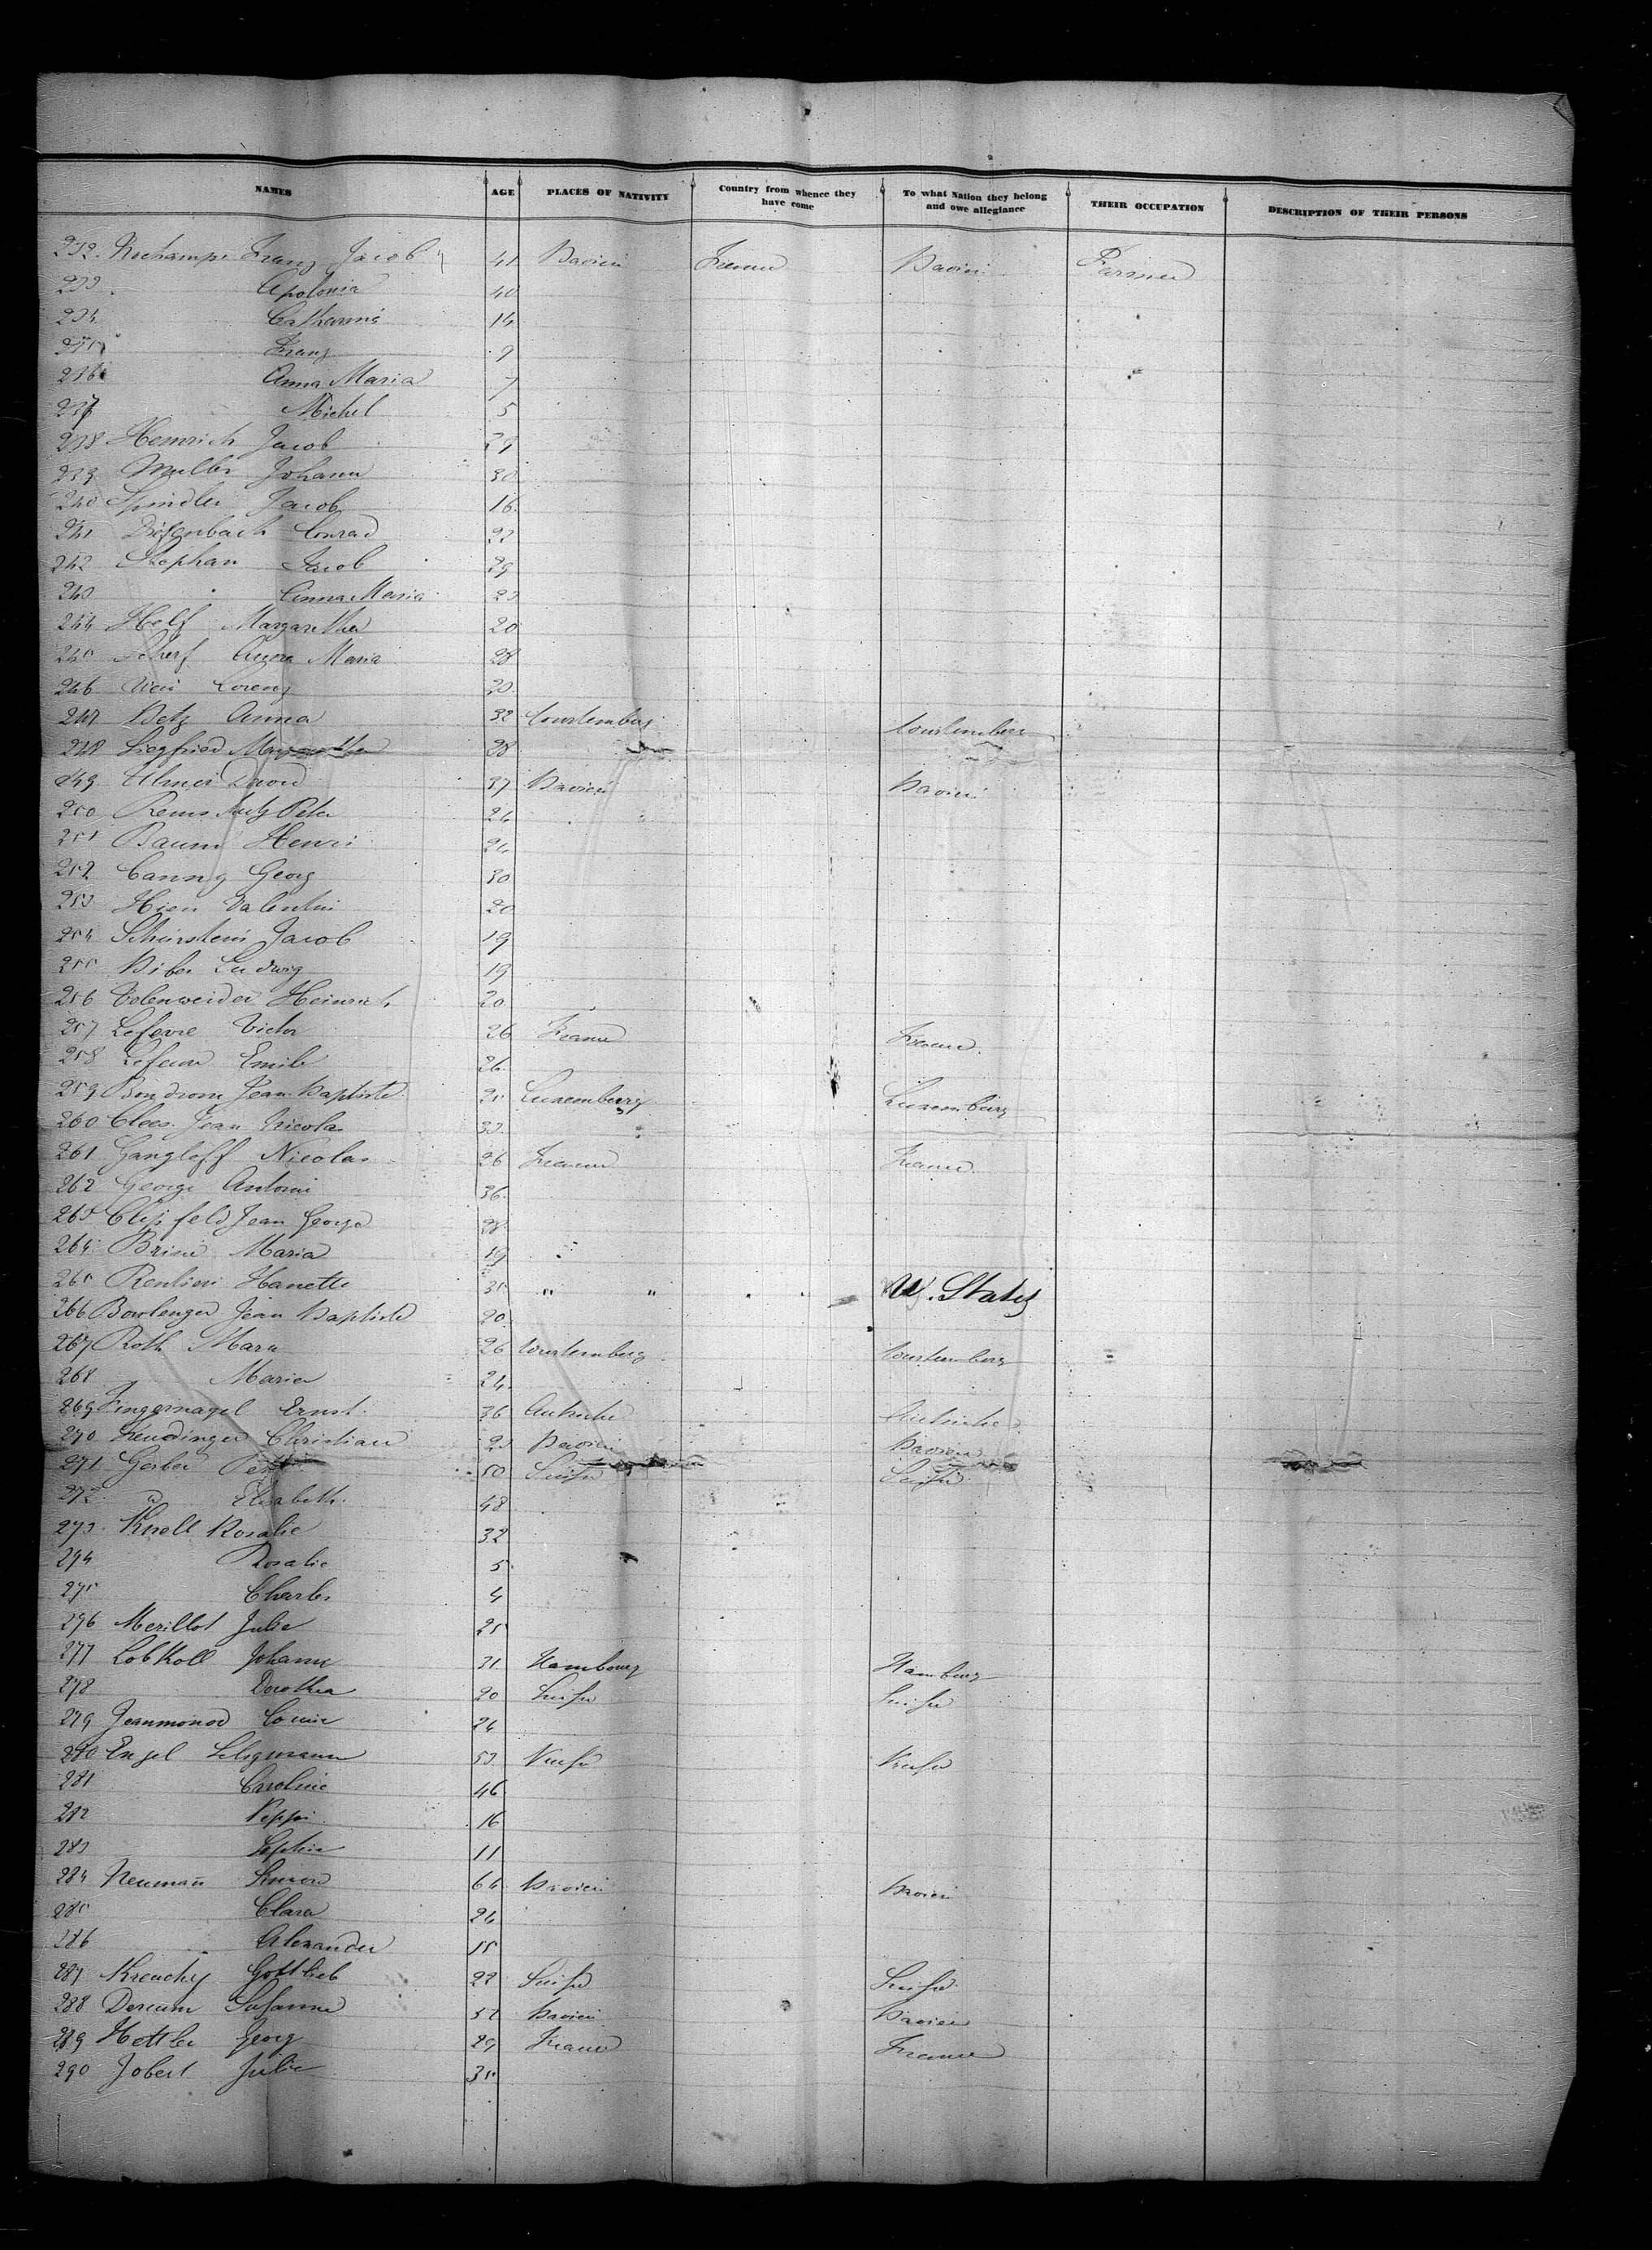 NAMES AGE PLACES OF NATIVITY Country from whence they have come To what Nation they belong and owe allegiance THEIR OCCUPATION DESCRIPTION OF THEIR PERSONS
232. Franz Jacob 41 Bavier France Bavier Farmer
233 Apolonia 40
234 Catharina 14
235 Franz 9
236 Anna Maria 7
237 Michel 5
238 Hemrich Jacob 29
239 Muller Johann 30
240 Spindler Jacob 16
241 Diefenbach Conrad 22
242 Stephan Jacob 29
243 Anna Maria 23
244 Helf Margaretha 20
245 Scherf Anna Maria 28
246 Lorenz 30
247 Betz Anna 32 Wurtemberg Wurtemberg
248 Siegfried Margaretha 28
249 Ulmer David 37 Bavier Bavier
250 Peter 24
251 Baum Henri 24
252 Canny Georg 30
253 Hien Valentin 20
254 Jacob 19
255 Ludwig 19
256 Volenweider Heinrich 20
257 Lefevre Victor 26 France France
258 Lefevre Emile 26
259 Jean Baptiste 25 Luxemburg Luxemburg
260 Clees Jean Nicolas 33
261 Gangloff Nicolas 26 France France
262 George Antoine 36
263 Clipfeld Jean George 28
264 Maria 19
265 Hanette 35 " " U. States
266 Boulenger Jean Baptiste 20
267 Roth Mara 26 Wurtemberg Wurtemberg
268 Maria 24
269 Fingernagel Ernst 36 Autriche Autriche
270 Christian 23 Bavier Bavier
271 Gerber Peter 50 Suisse Suisse
272 d Elisabeth 48
273 Knoll Rosalie 32
274 Rosalie 5
275 Charles 4
276 Merillot Julie 25
277 LobKoll Johann 31 Hambourg Hamburg
278 Dorothea 20 Suisse Suisse
279 Jeanmonod Louise 24
280 Engel 53 Preusse Preusse
281 Caroline 46
282 Peppi 16
283 Sophie 11
284 Neuman̄ Simon 64 Bavier Bavier
285 Clara 24
286 Alexander 15
287 Kreuchy Gottlieb 22 Suisse Suisse
288 Dercum Susanne 52 Bavier Bavier
289 Hottler Georg 29 France France
290 Jobert Julie 35